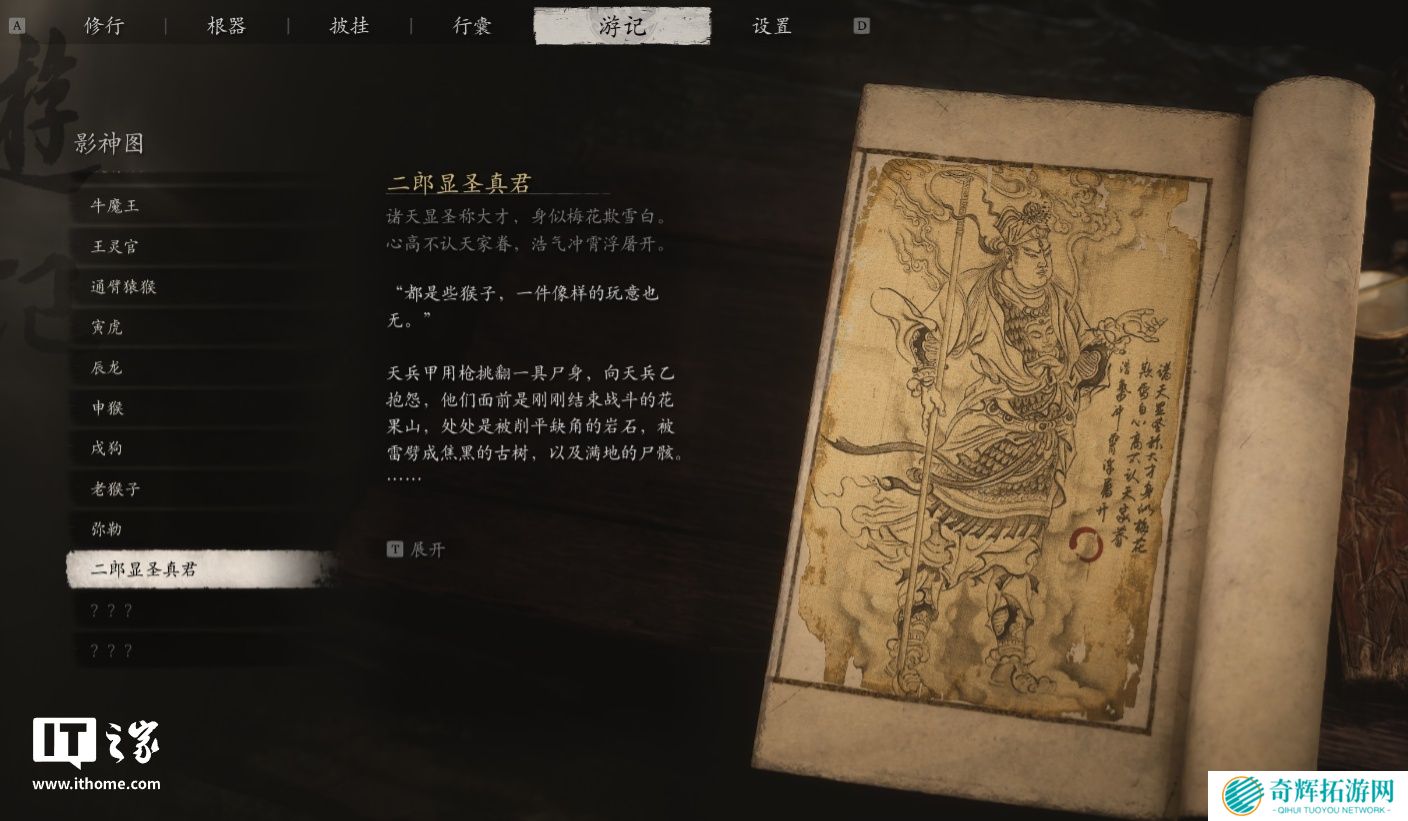 A 修行 | 根器 | 披挂 | 行囊 游记 设置 D
影神图
牛魔王
王灵官
通臂猿猴
寅虎
辰龙
申猴
戌狗
老猴子
弥勒
二郎显圣真君
？？？
？？？
二郎显圣真君
诸天显圣称大才，身似梅花欺雪白。
心高不认天家眷，浩气冲霄浮屠开。
“都是些猴子，一件像样的玩意也
无。”
天兵甲用枪挑翻一具尸身，向天兵乙
抱怨，他们面前是刚刚结束战斗的花
果山，处处是被削平缺角的岩石，被
雷劈成焦黑的古树，以及满地的尸骸。
……
T 展开
诸天显圣称大才身似梅花
欺雪白心高不认天家眷
浩气冲霄浮屠开
游记
IT之家
www.ithome.com
奇辉拓游网
- QIHUI TUOYOU NETWORK -